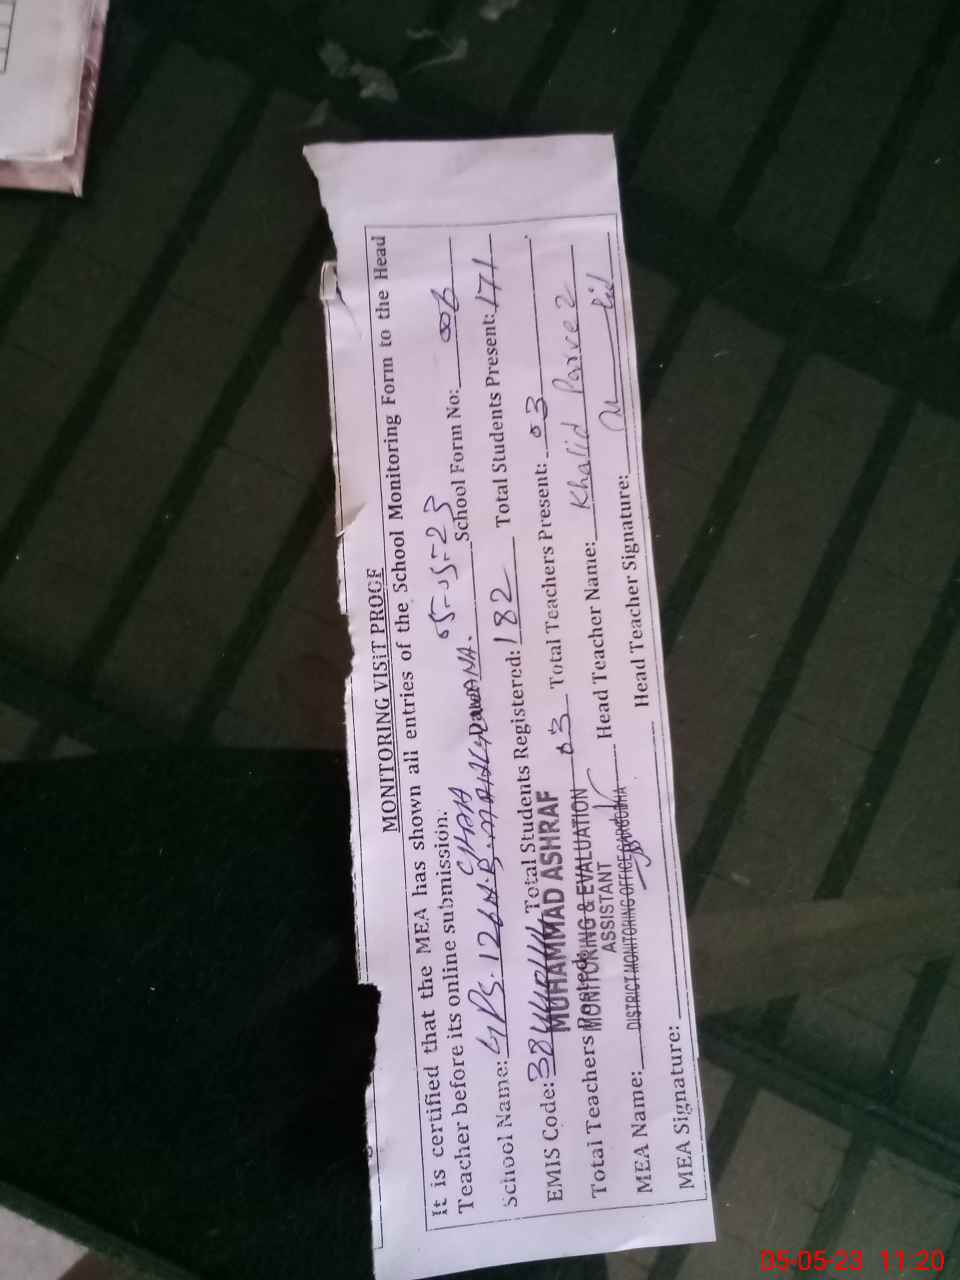 MONITORING VISIT PROOF
It is certified that the MEA has shown all entries of the School Monitoring Form to the Head
Teacher before its online submission. 05-05-23
School Name: GPS. 126 N.B. CHAH School Form No: 006
EMIS Code: Total Students Registered: 182 Total Students Present: 171
MUHAMMAD ASHRAF
Total Teachers Posted: 03 Total Teachers Present: 03
MONITORING & EVALUATION
ASSISTANT
MEA Name: Head Teacher Name: Khalid Parvez
DISTRICT MONITORING OFFICE SARGODHA
MEA Signature: Head Teacher Signature:
05-05-23 11:20